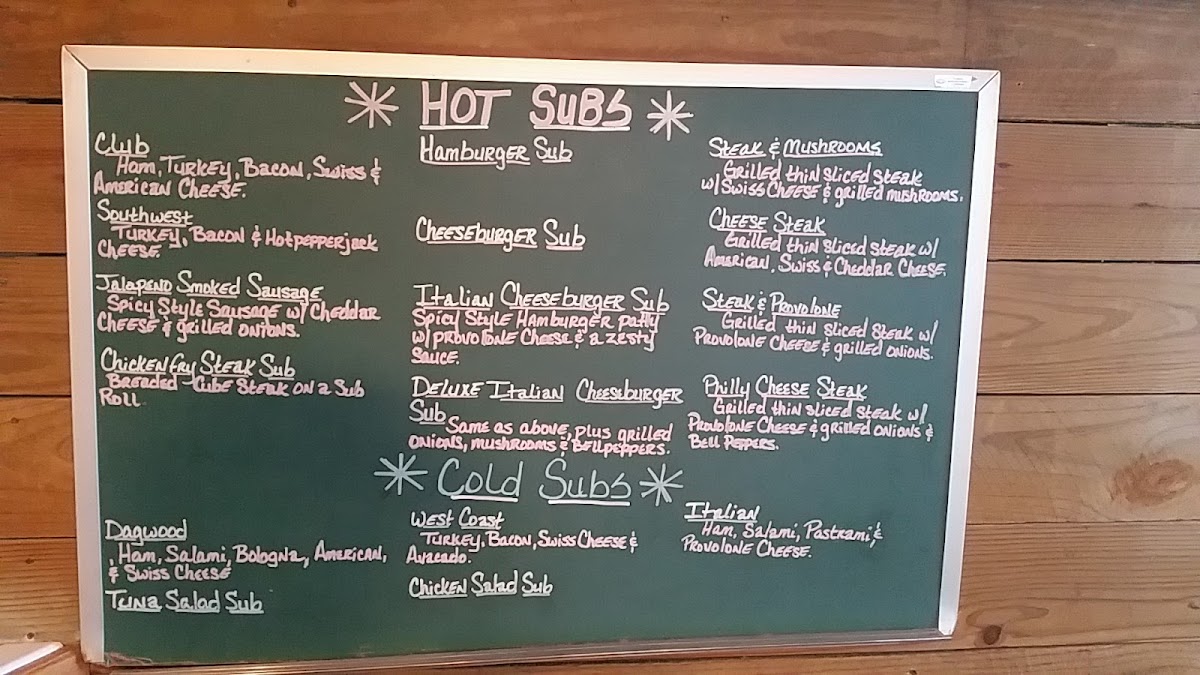 * HOT SUBS *
Club
Ham, Turkey, Bacon, Swiss &
American Cheese.
Southwest
Turkey, Bacon & Hotpepperjack
Cheese.
Jalapeno Smoked Sausage
Spicy Style Sausage w/ Cheddar
Cheese & grilled onions.
Chicken fry Steak Sub
Breaded Cube Steak on a Sub
Roll
Hamburger Sub
Cheeseburger Sub
Italian Cheeseburger Sub
Spicy Style Hamburger patty
w/ provolone Cheese & a zesty
sauce.
Deluxe Italian Cheeseburger
Sub
Same as above, plus grilled
onions, mushrooms & Bellpeppers.
Steak & Mushrooms
Grilled thin sliced steak
w/ Swiss Cheese & grilled mushrooms.
Cheese Steak
Grilled thin sliced steak w/
American, Swiss & Cheddar Cheese.
Steak & Provolone
Grilled thin sliced steak w/
Provolone Cheese & grilled onions.
Philly Cheese Steak
Grilled thin sliced steak w/
Provolone Cheese & grilled onions &
Bell Peppers.
* Cold Subs *
Dagwood
, Ham, Salami, Bologna, American,
& Swiss Cheese
Tuna Salad Sub
West Coast
Turkey, Bacon, Swiss Cheese &
Avacado.
Chicken Salad Sub
Italian
Ham, Salami, Pastrami, &
Provolone Cheese.